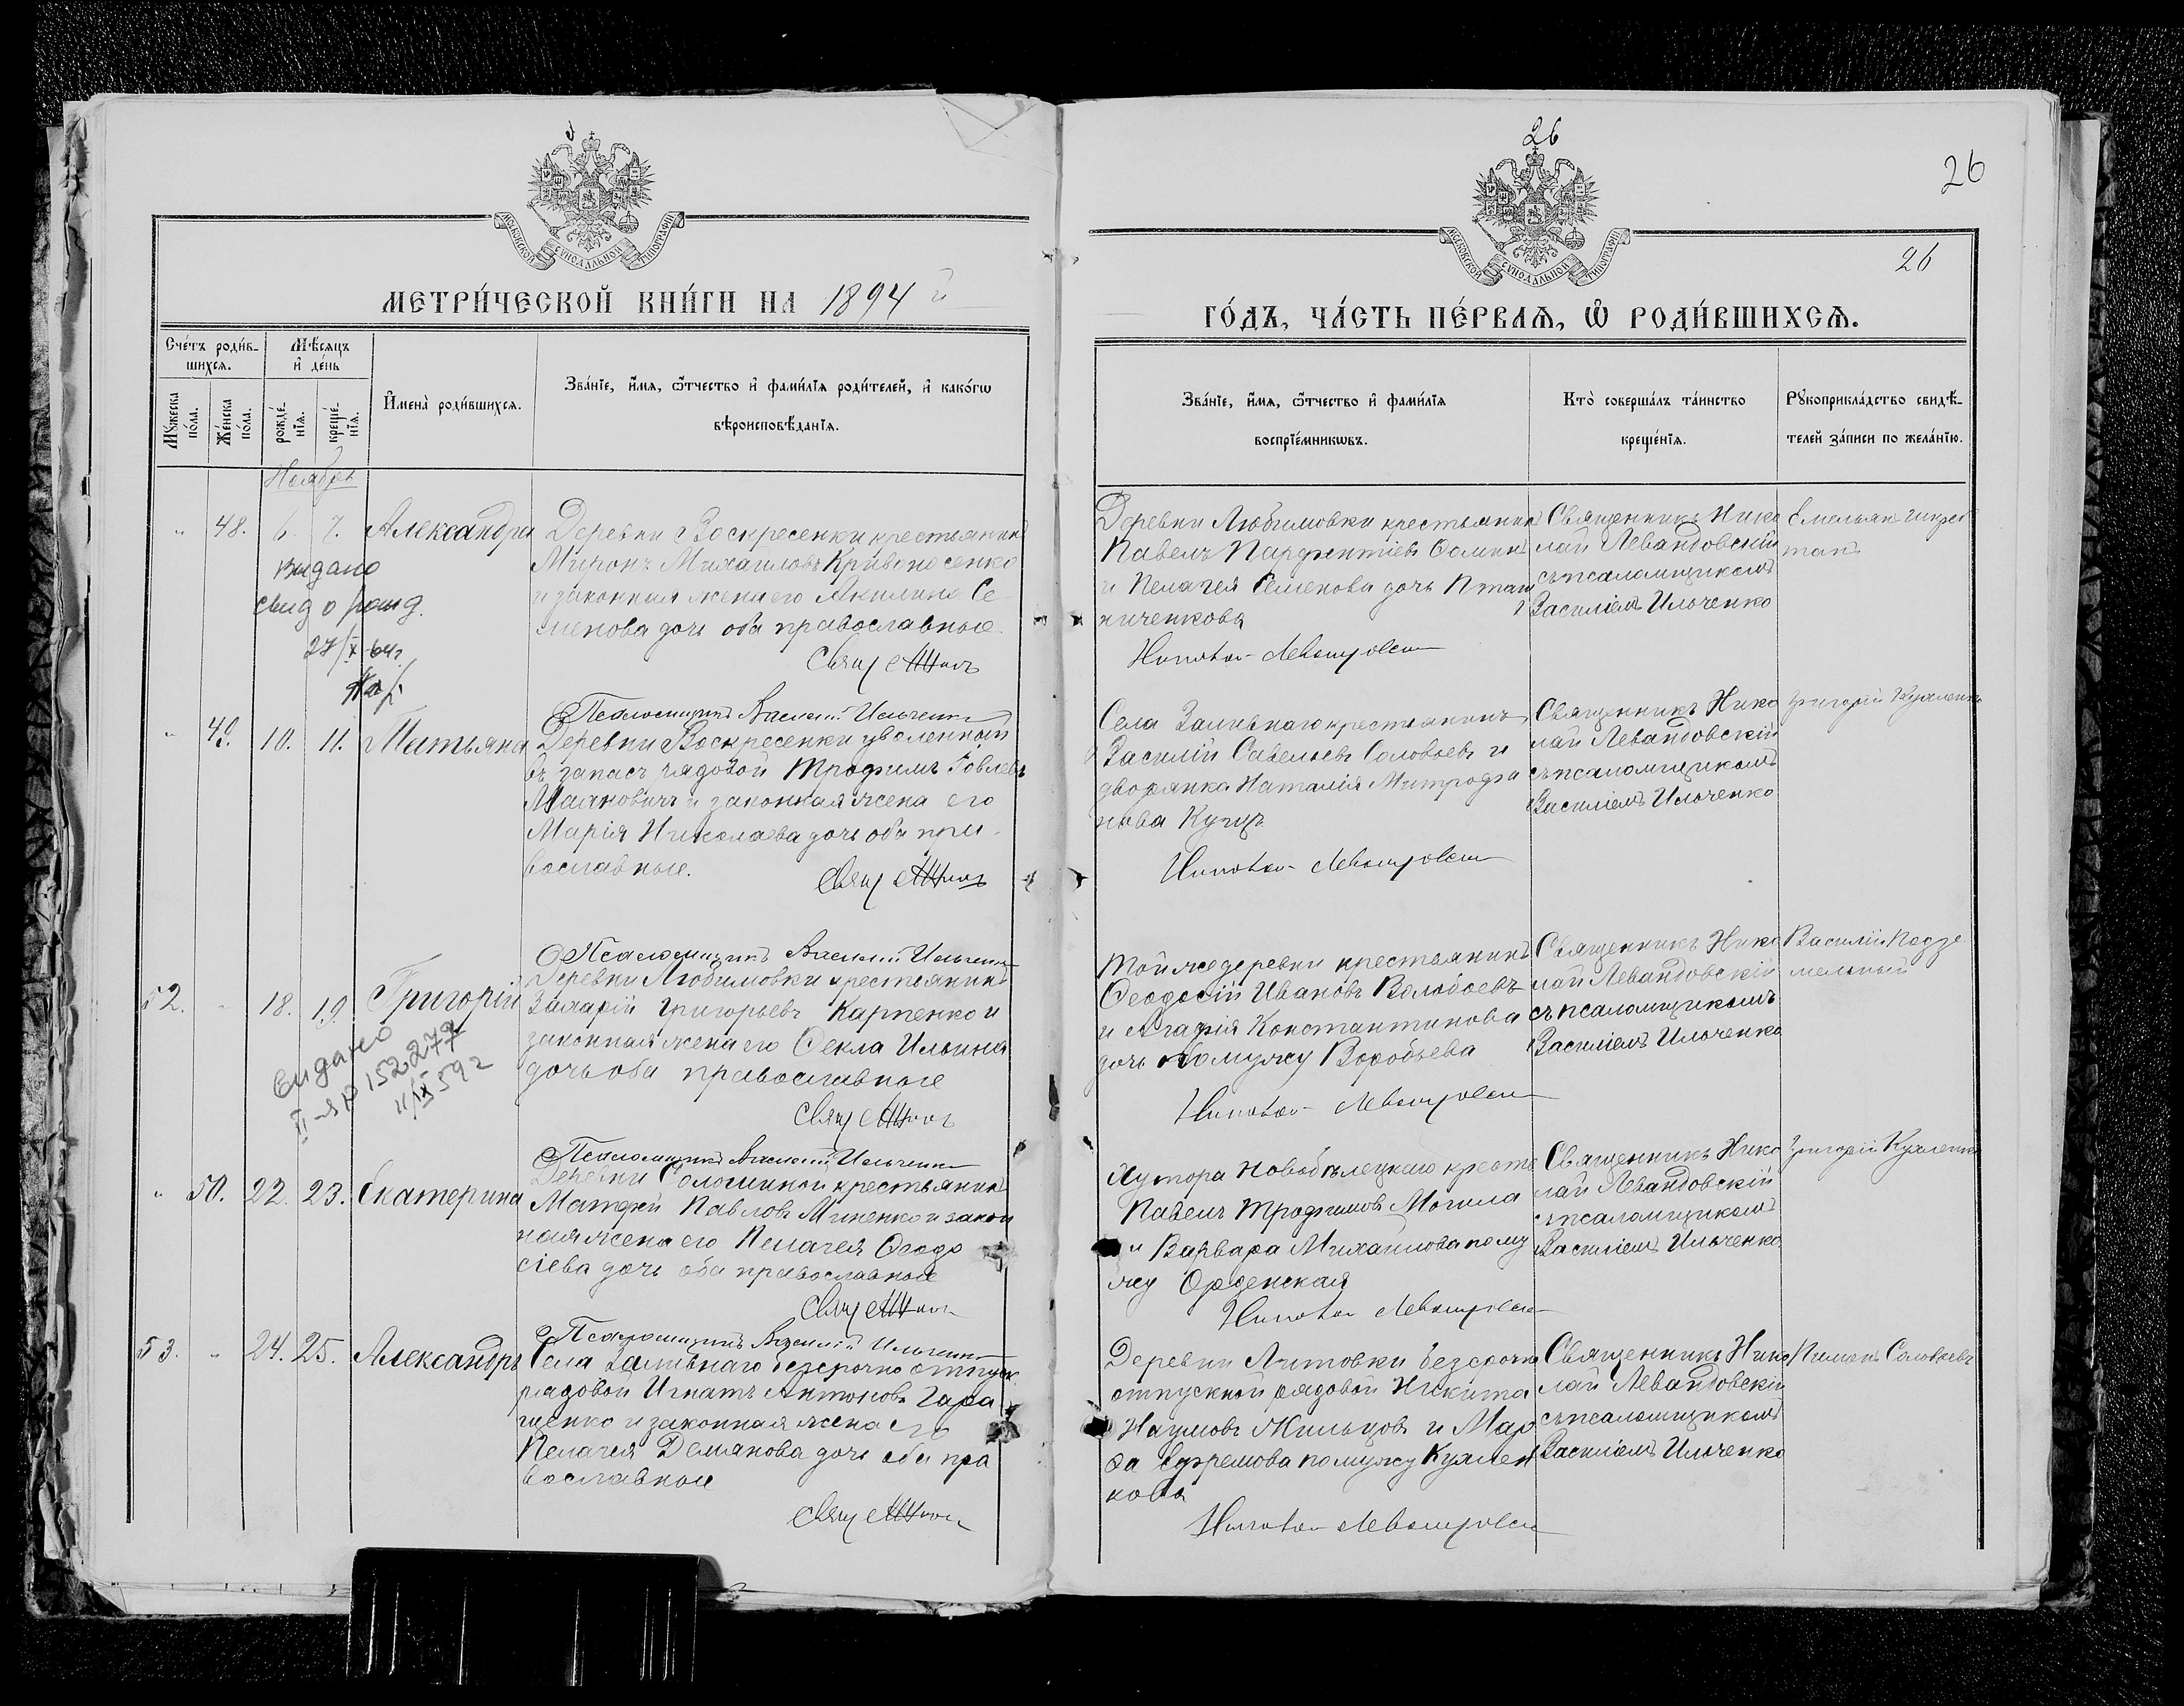 26
26
26
МОСКОВСКОЙ СѴНОДАЛЬНОЙ ТИПОГРАФІИ
МЕТРИ́ЧЕСКОЙ КНИ́ГИ НА 1894 й
Сче́тъ роди́в-
шихсѧ.
Мѣ́сѧцъ
и҆ де́нь
И҆мена̀ роди́вшихсѧ.
Зва́нїе, и҆́мѧ, ѻ҆́тчество и҆ фами́лїѧ роди́телей, и҆ како́гѡ
вѣроисповѣ́данїѧ.
Мꙋ́жеска
по́ла.
Же́нска
по́ла.
рожде́-
нїѧ.
креще́-
нїѧ.
Ноябрь
" 48. 6. 7. Александра
Деревни Воскресенки крестьянинъ
Миронъ Михайловъ Кривоносенко
и законная жена его Акилина Се-
менова дочь оба православные
видано
свид о рожд.
27/X-64г.
Свящ
Псаломщикъ Василий Ильченко
" 49. 10. 11. Татьяна
Деревни Воскресенки уволенный
въ запасъ рядовой Трофимъ Іовлевъ
и законная жена его
Марія Николаева дочь оба пра-
вославные.
Свящ
Псаломщикъ Василий Ильченко
52. " 18. 19. Григорій
Деревни Любимовки крестьянинъ
Захарій Григорьевъ Карпенко и
законная жена его Ѳекла Ильина
дочь оба православные
видано
II-ЯР 152277
11/IX 59г
Свящ
Псаломщикъ Василий Ильченко
" 50. 22. 23. Екатерина
Деревни Соломиной крестьянинъ
Матфей Павловъ Миненко и закон
ная жена его Пелагея Ѳеодо
сіева дочь оба православные
Свящ
Псаломщикъ Василій Ильченко
53. " 24. 25. Александръ
Села Заливнаго безсрочно отпуск
рядовой Игнатъ Антоновъ Гара
щенко и законная жена его
Пелагея Демянова дочь оба пра
вославные
Свящ
МОСКОВСКОЙ СѴНОДАЛЬНОЙ ТИПОГРАФІИ
ГО́ДЪ, ЧА́СТЬ ПЕ́РВАѦ, Ѽ РОДИ́ВШИХСѦ.
Зва́нїе, и҆́мѧ, ѻ҆́тчество и҆ фами́лїѧ
воспрїе́мникѡвъ.
Кто̀ соверша́лъ та́инство
креще́нїѧ.
Рꙋкоприкла́дство свидѣ́-
телей за́писи по жела́нїю.
Деревни Любимовки крестьянинъ
Павелъ Парфентіевъ Ѳомин
и Пелагея Семенова дочь Пташ
ниченкова
Николай Левандовскій
Священникъ Нико
лай Левандовскій
съ псаломщикомъ
Василіемъ Ильченко
Емельян
Села Заливнаго крестьянинъ
Василій Савельевъ Соловьевъ и
дворянка Наталія Митрофа
нова
Николай Левандовскій
Священникъ Нико
лай Левандовскій
съ псаломщикомъ
Василіемъ Ильченко
Григорій Кухленко
Той же деревни крестьянинъ
Ѳеодосій Ивановъ
и Агафія Константинова
дочь по мужу Воробьева
Николай Левандовскій
Священникъ Нико
лай Левандовскій
съ псаломщикомъ
Василіемъ Ильченко
Василій Подзе
мельный
Хутора Новобѣлецкаго крестьян
Павелъ Трофимовъ Могила
и Варвара Михайлова по му
жу
Николай Левандовскій
Священникъ Нико
лай Левандовскій
съ псаломщикомъ
Василіемъ Ильченко
Григорій Кухленко
Деревни Литовки безсрочно
отпускной рядовой Никита
Наумовъ Жильцовъ и Мар
ѳа Ефремова по мужу Кухлен
кова
Николай Левандовскій
Священникъ Нико
лай Левандовскій
съ псаломщикомъ
Василіемъ Ильченко
Пименъ Соловьевъ